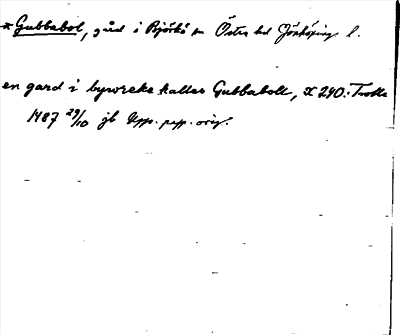 * Gubbabol, gård i Björkö sn Östra hd Jönköping l.
en gard i bywreke kallas Gubbaboll, X 240: Trolle
1487 29/10 jb Upps. papp. orig.